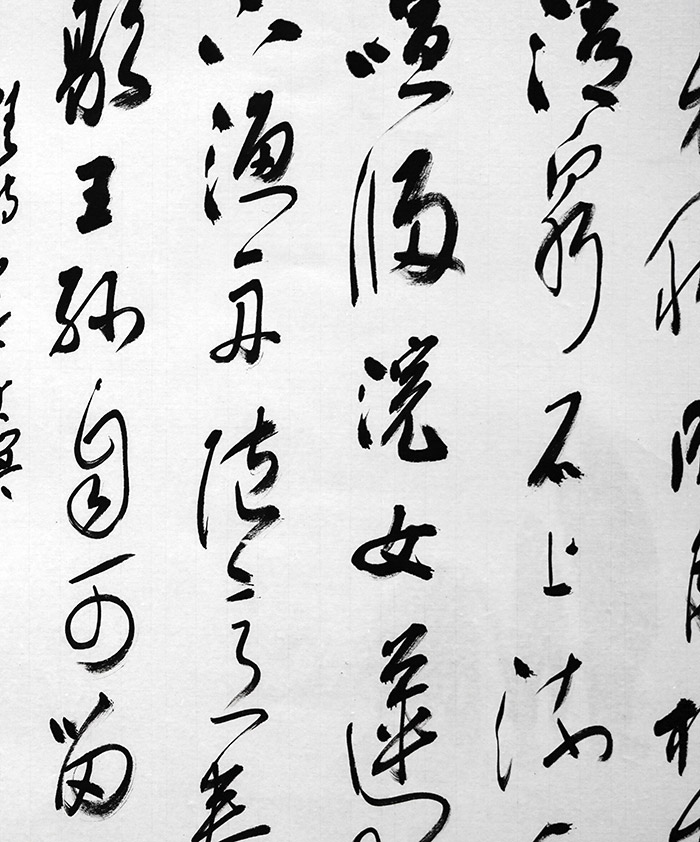 秋明月松
清泉石上流
喧歸浣女蓮
下漁舟隨意春
歇王孫自可留